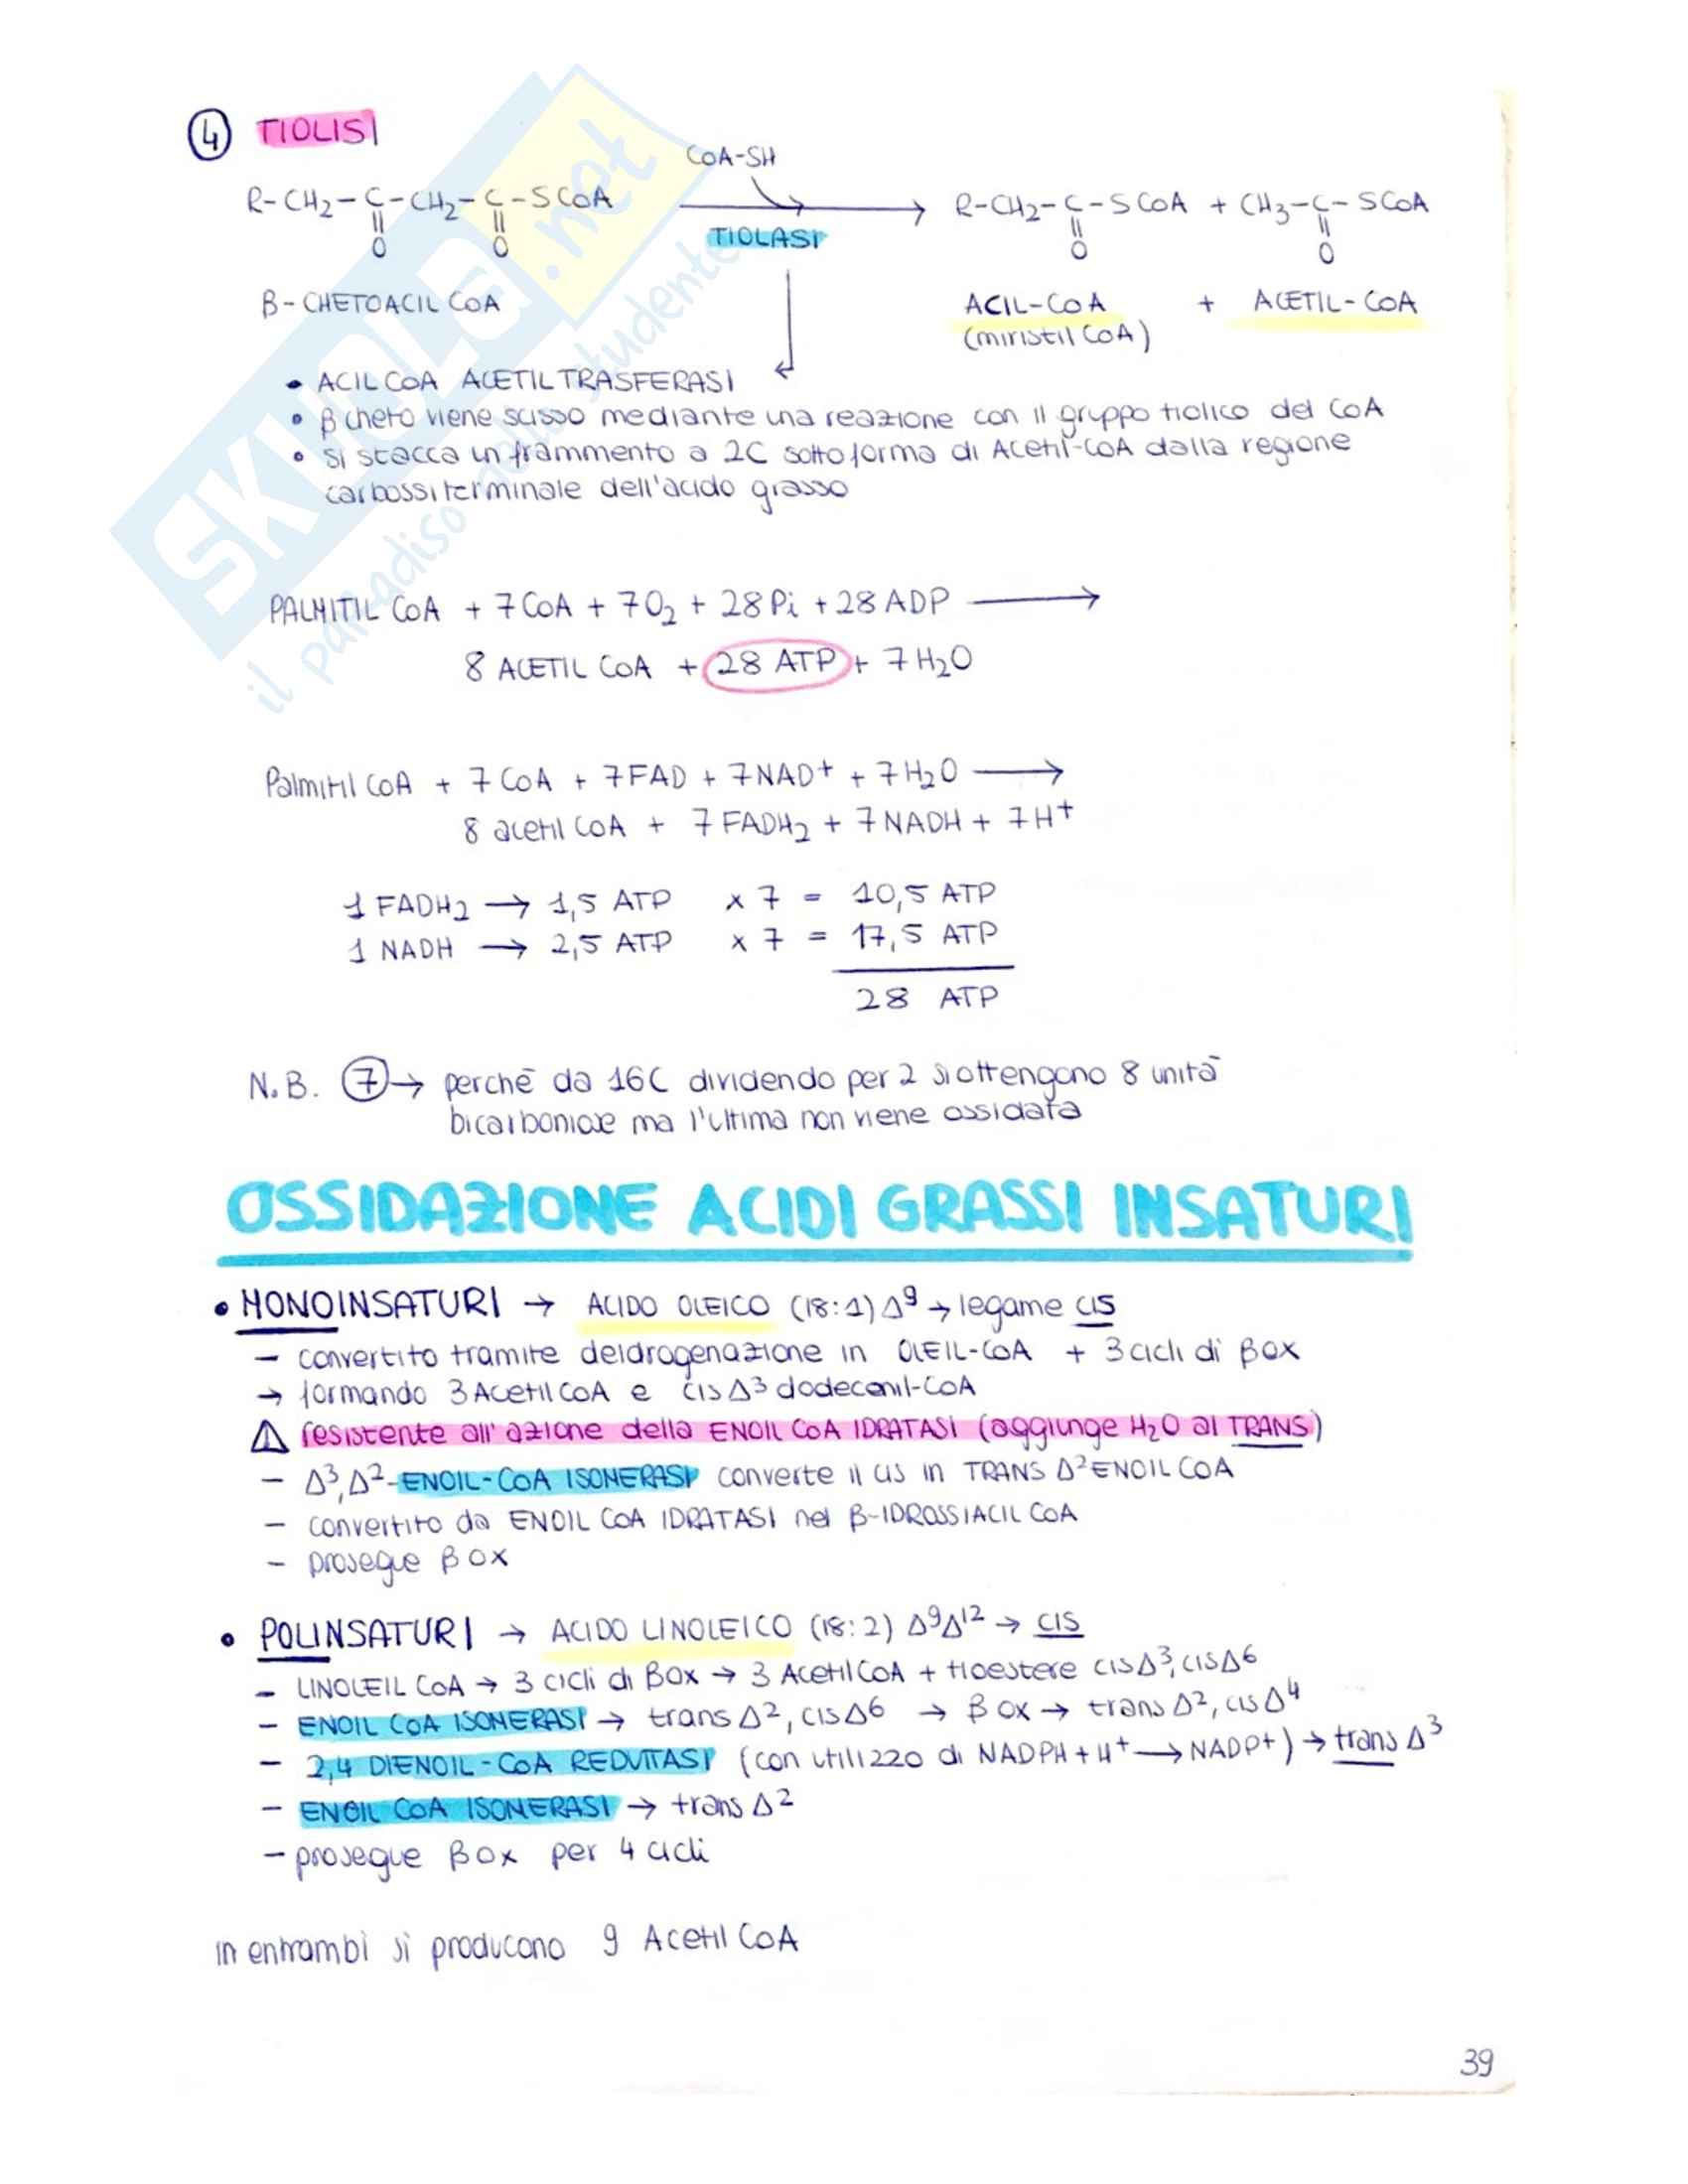 4 TIOLISI
CoA-SH
R-CH2-C-CH2-C-SCoA → R-CH2-C-SCoA + CH3-C-SCoA
O O O O
TIOLASI
β-CHETOACIL CoA
ACIL-CoA + ACETIL-CoA
(miristil CoA)
• ACIL CoA ACETILTRASFERASI
• β cheto viene scisso mediante una reazione con il gruppo tiolico del CoA
• si stacca un frammento a 2C sottoforma di Acetil-CoA dalla regione
carbossiterminale dell'acido grasso
PALMITIL CoA + 7CoA + 7O2 + 28Pi + 28ADP →
8 ACETIL CoA + 28 ATP + 7H2O
Palmitil CoA + 7 CoA + 7FAD + 7NAD+ + 7H2O →
8 acetil CoA + 7FADH2 + 7NADH + 7H+
1 FADH2 → 1,5 ATP x 7 = 10,5 ATP
1 NADH → 2,5 ATP x 7 = 17,5 ATP
28 ATP
N.B. 7 → perché da 16C dividendo per 2 si ottengono 8 unità
bicarboniose ma l'ultima non viene ossidata
OSSIDAZIONE ACIDI GRASSI INSATURI
• MONOINSATURI → ACIDO OLEICO (18:1) Δ9 → legame CIS
- convertito tramite deidrogenazione in OLEIL-CoA + 3 cicli di βox
→ formando 3 Acetil CoA e cis Δ3 dodecenil-CoA
⚠ resistente all'azione della ENOIL CoA IDRATASI (aggiunge H2O al TRANS)
- Δ3,Δ2-ENOIL-CoA ISOMERASI converte il cis in TRANS Δ2 ENOIL CoA
- convertito da ENOIL CoA IDRATASI nel β-IDROSSIACIL CoA
- prosegue βOX
• POLINSATURI → ACIDO LINOLEICO (18:2) Δ9Δ12 → CIS
- LINOLEIL CoA → 3 cicli di βox → 3 Acetil CoA + tioestere cisΔ3, cisΔ6
- ENOIL CoA ISOMERASI → trans Δ2, cisΔ6 → βox → trans Δ2, cisΔ4
- 2,4 DIENOIL-CoA REDUTTASI (con utilizzo di NADPH + H+ → NADP+) → trans Δ3
- ENOIL CoA ISOMERASI → trans Δ2
- prosegue βox per 4 cicli
in entrambi si producono 9 Acetil CoA
39
SKUOLA.net